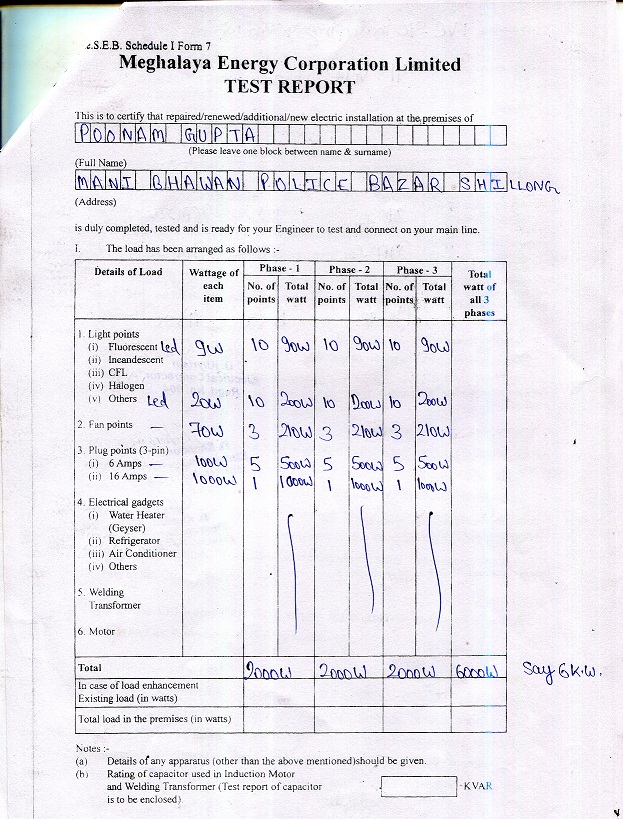 .S.E.B. Schedule I Form 7
Meghalaya Energy Corporation Limited
TEST REPORT
This is to certify that repaired/renewed/additional/new electric installation at the premises of
POONAM GUPTA
(Please leave one block between name & surname)
(Full Name)
MANI BHAWAN POLICE BAZAR SHILLONG
(Address)
is duly completed, tested and is ready for your Engineer to test and connect on your main line.
1. The load has been arranged as follows :-
Details of Load Wattage of each item Phase - 1 Phase - 2 Phase - 3 Total watt of all 3 phases
No. of points Total watt No. of points Total watt No. of points Total watt
1. Light points
(i) Fluorescent Led 9W 10 90W 10 90W 10 90W
(ii) Incandescent
(iii) CFL
(iv) Halogen
(v) Others Led 20W 10 200W 10 200W 10 200W
2. Fan points — 70W 3 210W 3 210W 3 210W
3. Plug points (3-pin)
(i) 6 Amps — 100W 5 500W 5 500W 5 500W
(ii) 16 Amps — 1000W 1 1000W 1 1000W 1 1000W
4. Electrical gadgets
(i) Water Heater
(Geyser)
(ii) Refrigerator
(iii) Air Conditioner
(iv) Others
5. Welding
Transformer
6. Motor
Total 2000W 2000W 2000W 6000W Say 6 K.W.
In case of load enhancement
Existing load (in watts)
Total load in the premises (in watts)
Notes :-
(a) Details of any apparatus (other than the above mentioned)should be given.
(b) Rating of capacitor used in Induction Motor
and Welding Transformer (Test report of capacitor - KVAR
is to be enclosed).